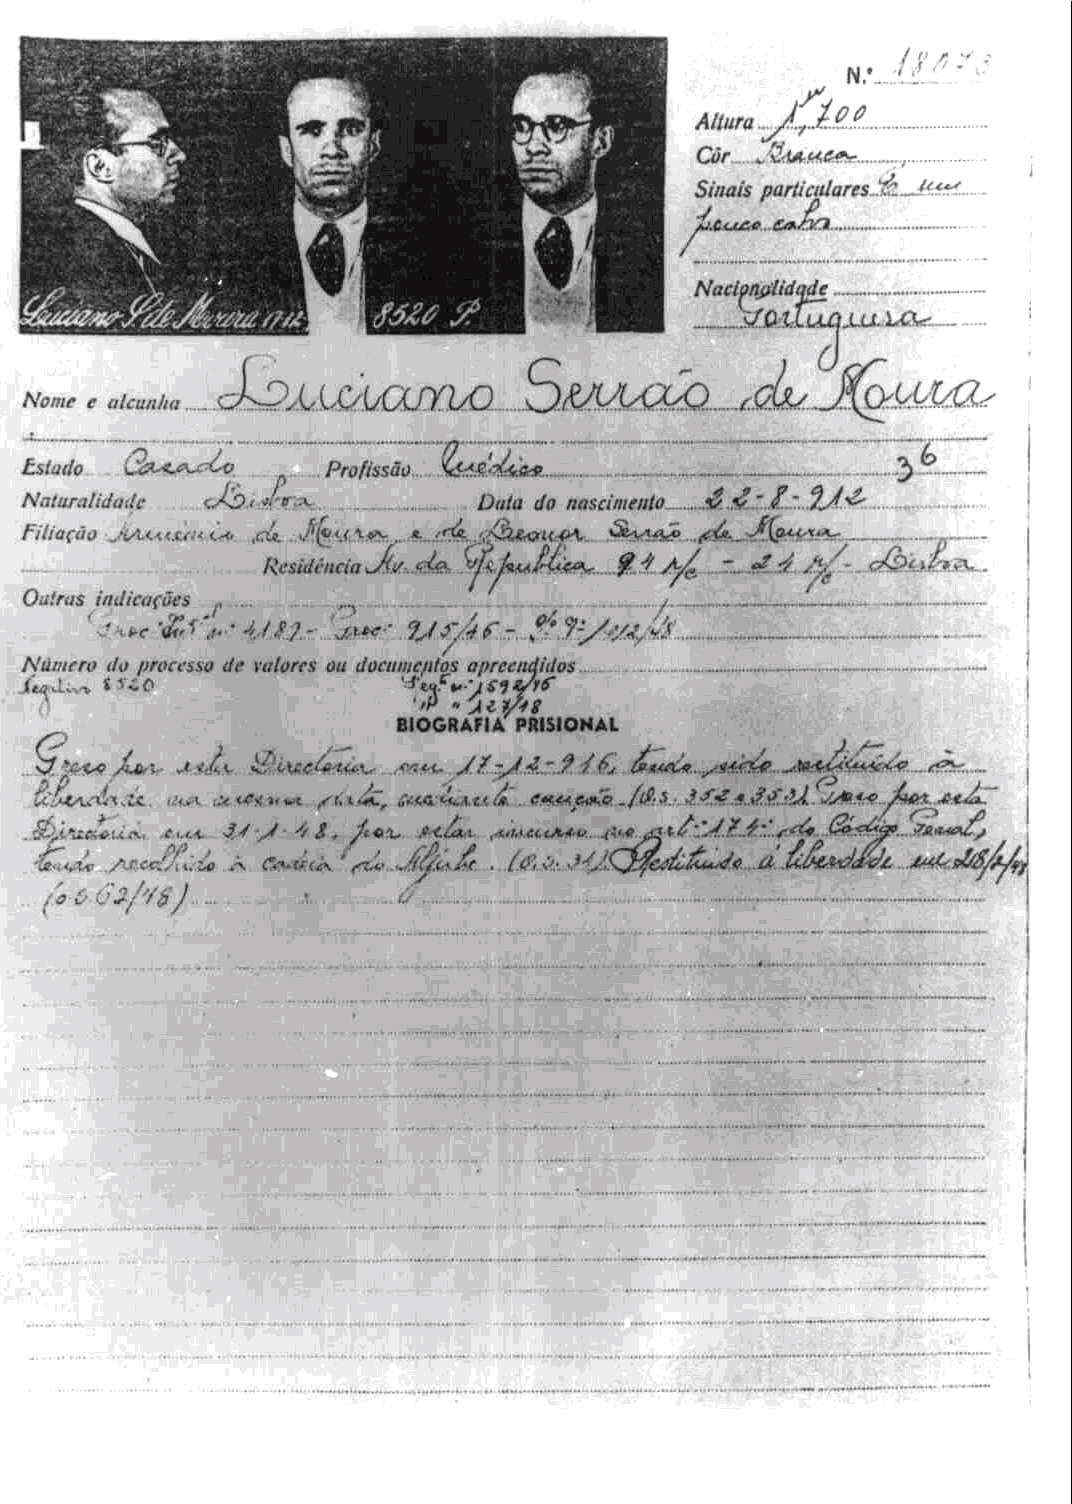 N.º 18073
Altura 1,m700
Côr Branca
Sinais particulares É um
pouco calvo
Nacionalidade
Portuguesa
Luciano S. de Moura
8520 P.
Nome e alcunha Luciano Serrão de Moura
Estado Casado Profissão Médico 36
Naturalidade Lisboa Data do nascimento 22-8-912
Filiação Arménio de Moura e de Leonor Serrão de Moura
Residência Av. da República 91 r/c - 21 r/c - Lisboa
Outras indicações
Proc. nº 4187 - Proc. 915/46 - 1012/48
Número do processo de valores ou documentos apreendidos
Negativo 8520 Seg. nº 1592/46
" " 127/48
BIOGRAFIA PRISIONAL
Preso por esta Directoria em 17-12-946, tendo sido restituído à
liberdade na mesma data, mediante caução (O.S. 352 e 353). Preso por esta
Directoria em 31-1-48, por estar incurso no artº 174º do Código Penal,
tendo recolhido à cadeia do Aljube. (O.S. 31). Restituído à liberdade em 28/2/48
(O.S 62/48)